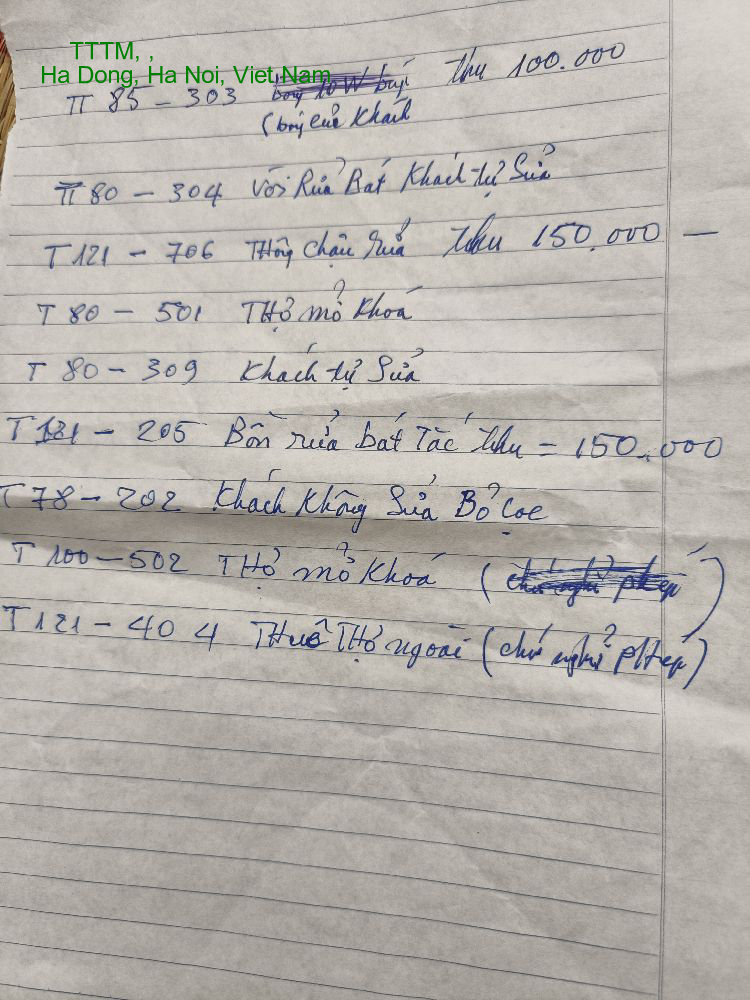 TTTM, ,
Ha Dong, Ha Noi, Viet Nam
T 85 - 303 bóng 10W búp thu 100.000
(bóng của Khách
T 80 - 304 Vòi Rửa Bát Khách tự Sửa
T 121 - 706 Thông chậu rửa thu 150.000 —
T 80 - 501 Thợ mở Khoá
T 80 - 309 Khách tự Sửa
T 121 - 205 Bồn rửa bát Tắc thu = 150.000
T 78 - 202 Khách Không Sửa Bỏ Cọc
T 100 - 502 Thợ mở Khoá (chú nghỉ phép)
T 121 - 404 Thuê Thợ ngoài (chú nghỉ phép)